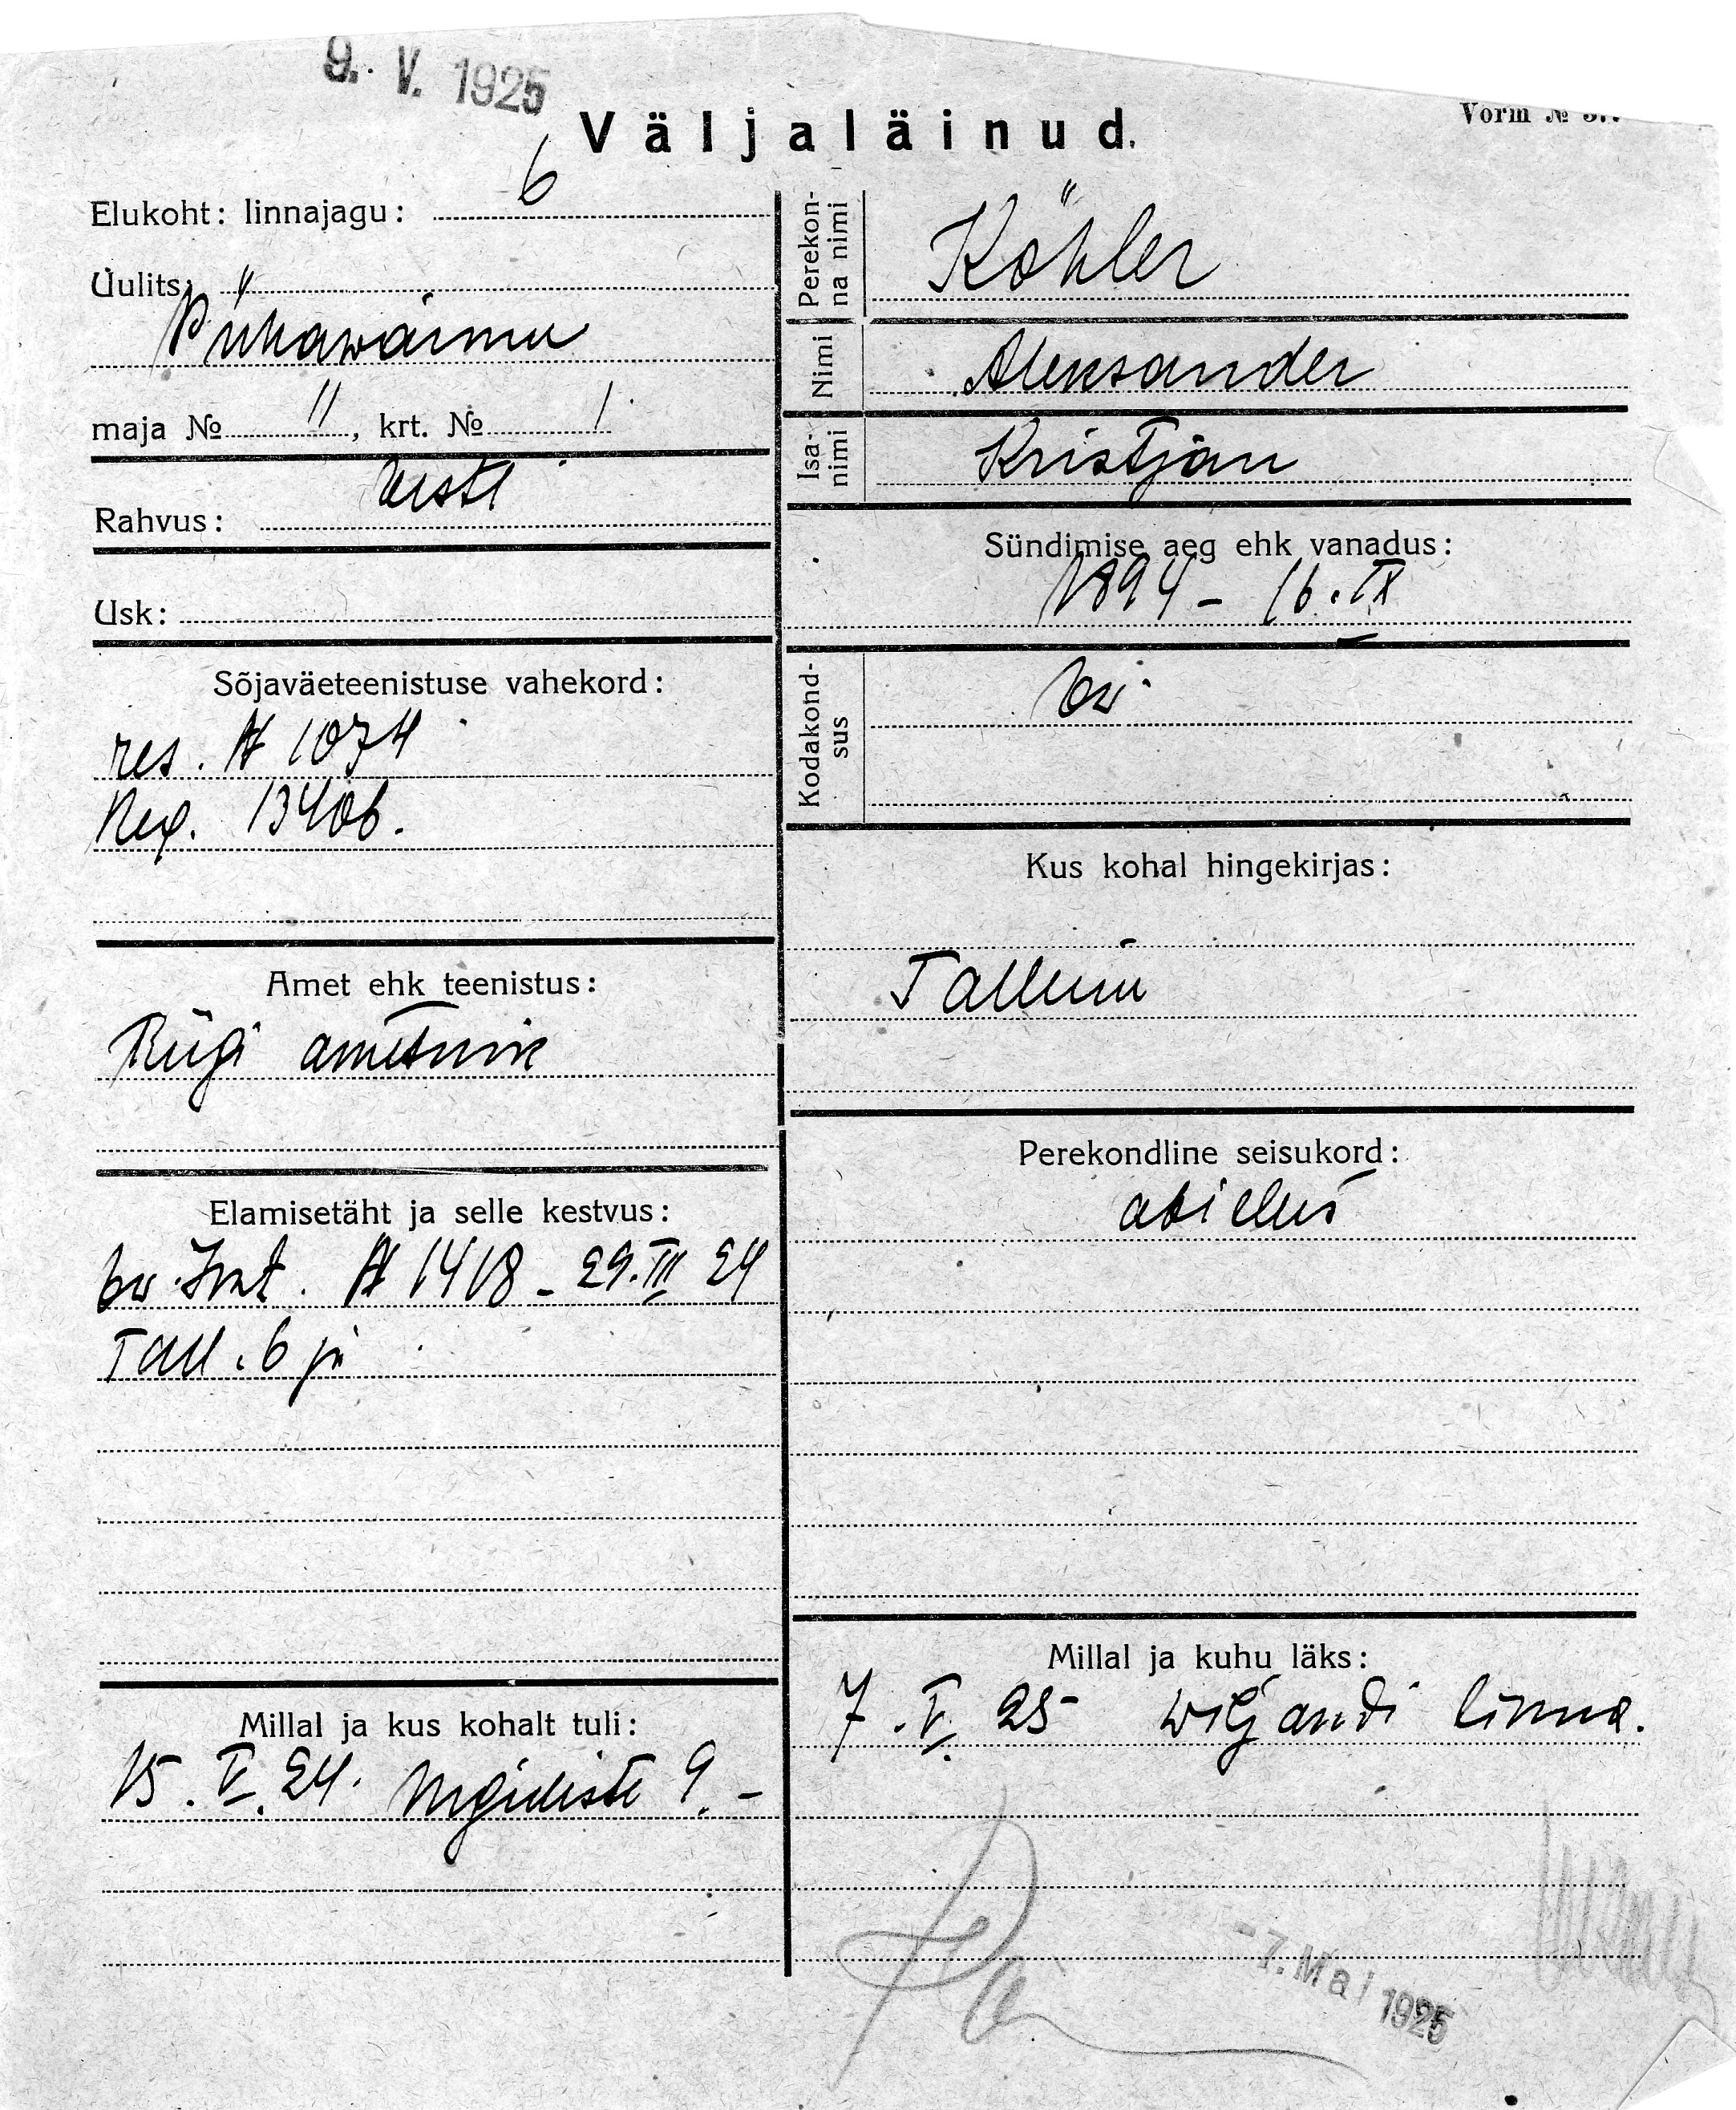 9. V. 1925
Väljaläinud.
Vorm №
Elukoht: linnajagu: 6
Uulits: Pühawaimu
maja № 11, krt. № 1.
Rahvus: eesti
Usk:
Sõjaväeteenistuse vahekord:
res. № 1074
Reg. 13406.
Amet ehk teenistus:
Riigi ametnik
Elamisetäht ja selle kestvus:
ew. Isat. № 1418 - 29.III 24
Tall. 6 jn
Millal ja kus kohalt tuli:
15. V. 24. 9. -
Perekonna nimi
Köhler
Nimi
Aleksander
Isanimi
Kristjan
Sündimise aeg ehk vanadus:
1894 - 16. IX
Kodakondsus
ew.
Kus kohal hingekirjas:
Tallinn
Perekondline seisukord:
abielus
Millal ja kuhu läks:
7. V. 25 Wiljandi linna.
-7. Mai 1925